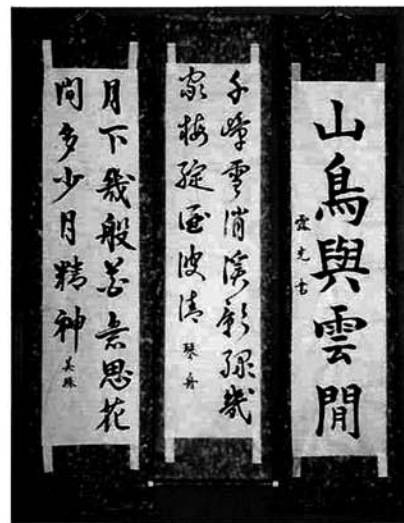 山鳥與雲閒
千嶂雪消溪影綠幾
家梅綻海波清
琴舟
月下幾般花意思花
間多少月精神
美珠